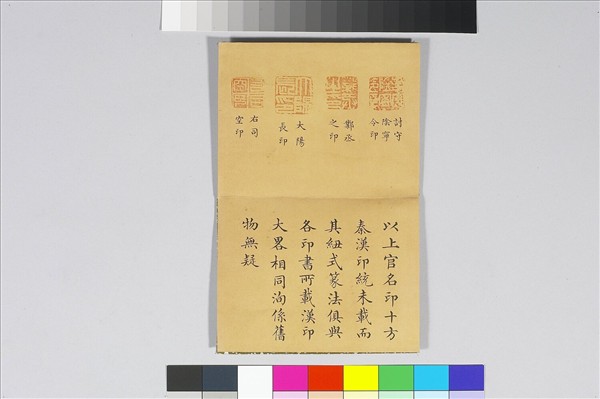 討守
陰寧
令印
鄴丞
之印
大陽
長印
右司
空印
以上官名印十方
秦漢印統未載而
其紐式篆法俱與
各印書所載漢印
大畧相同洵係舊
物無疑